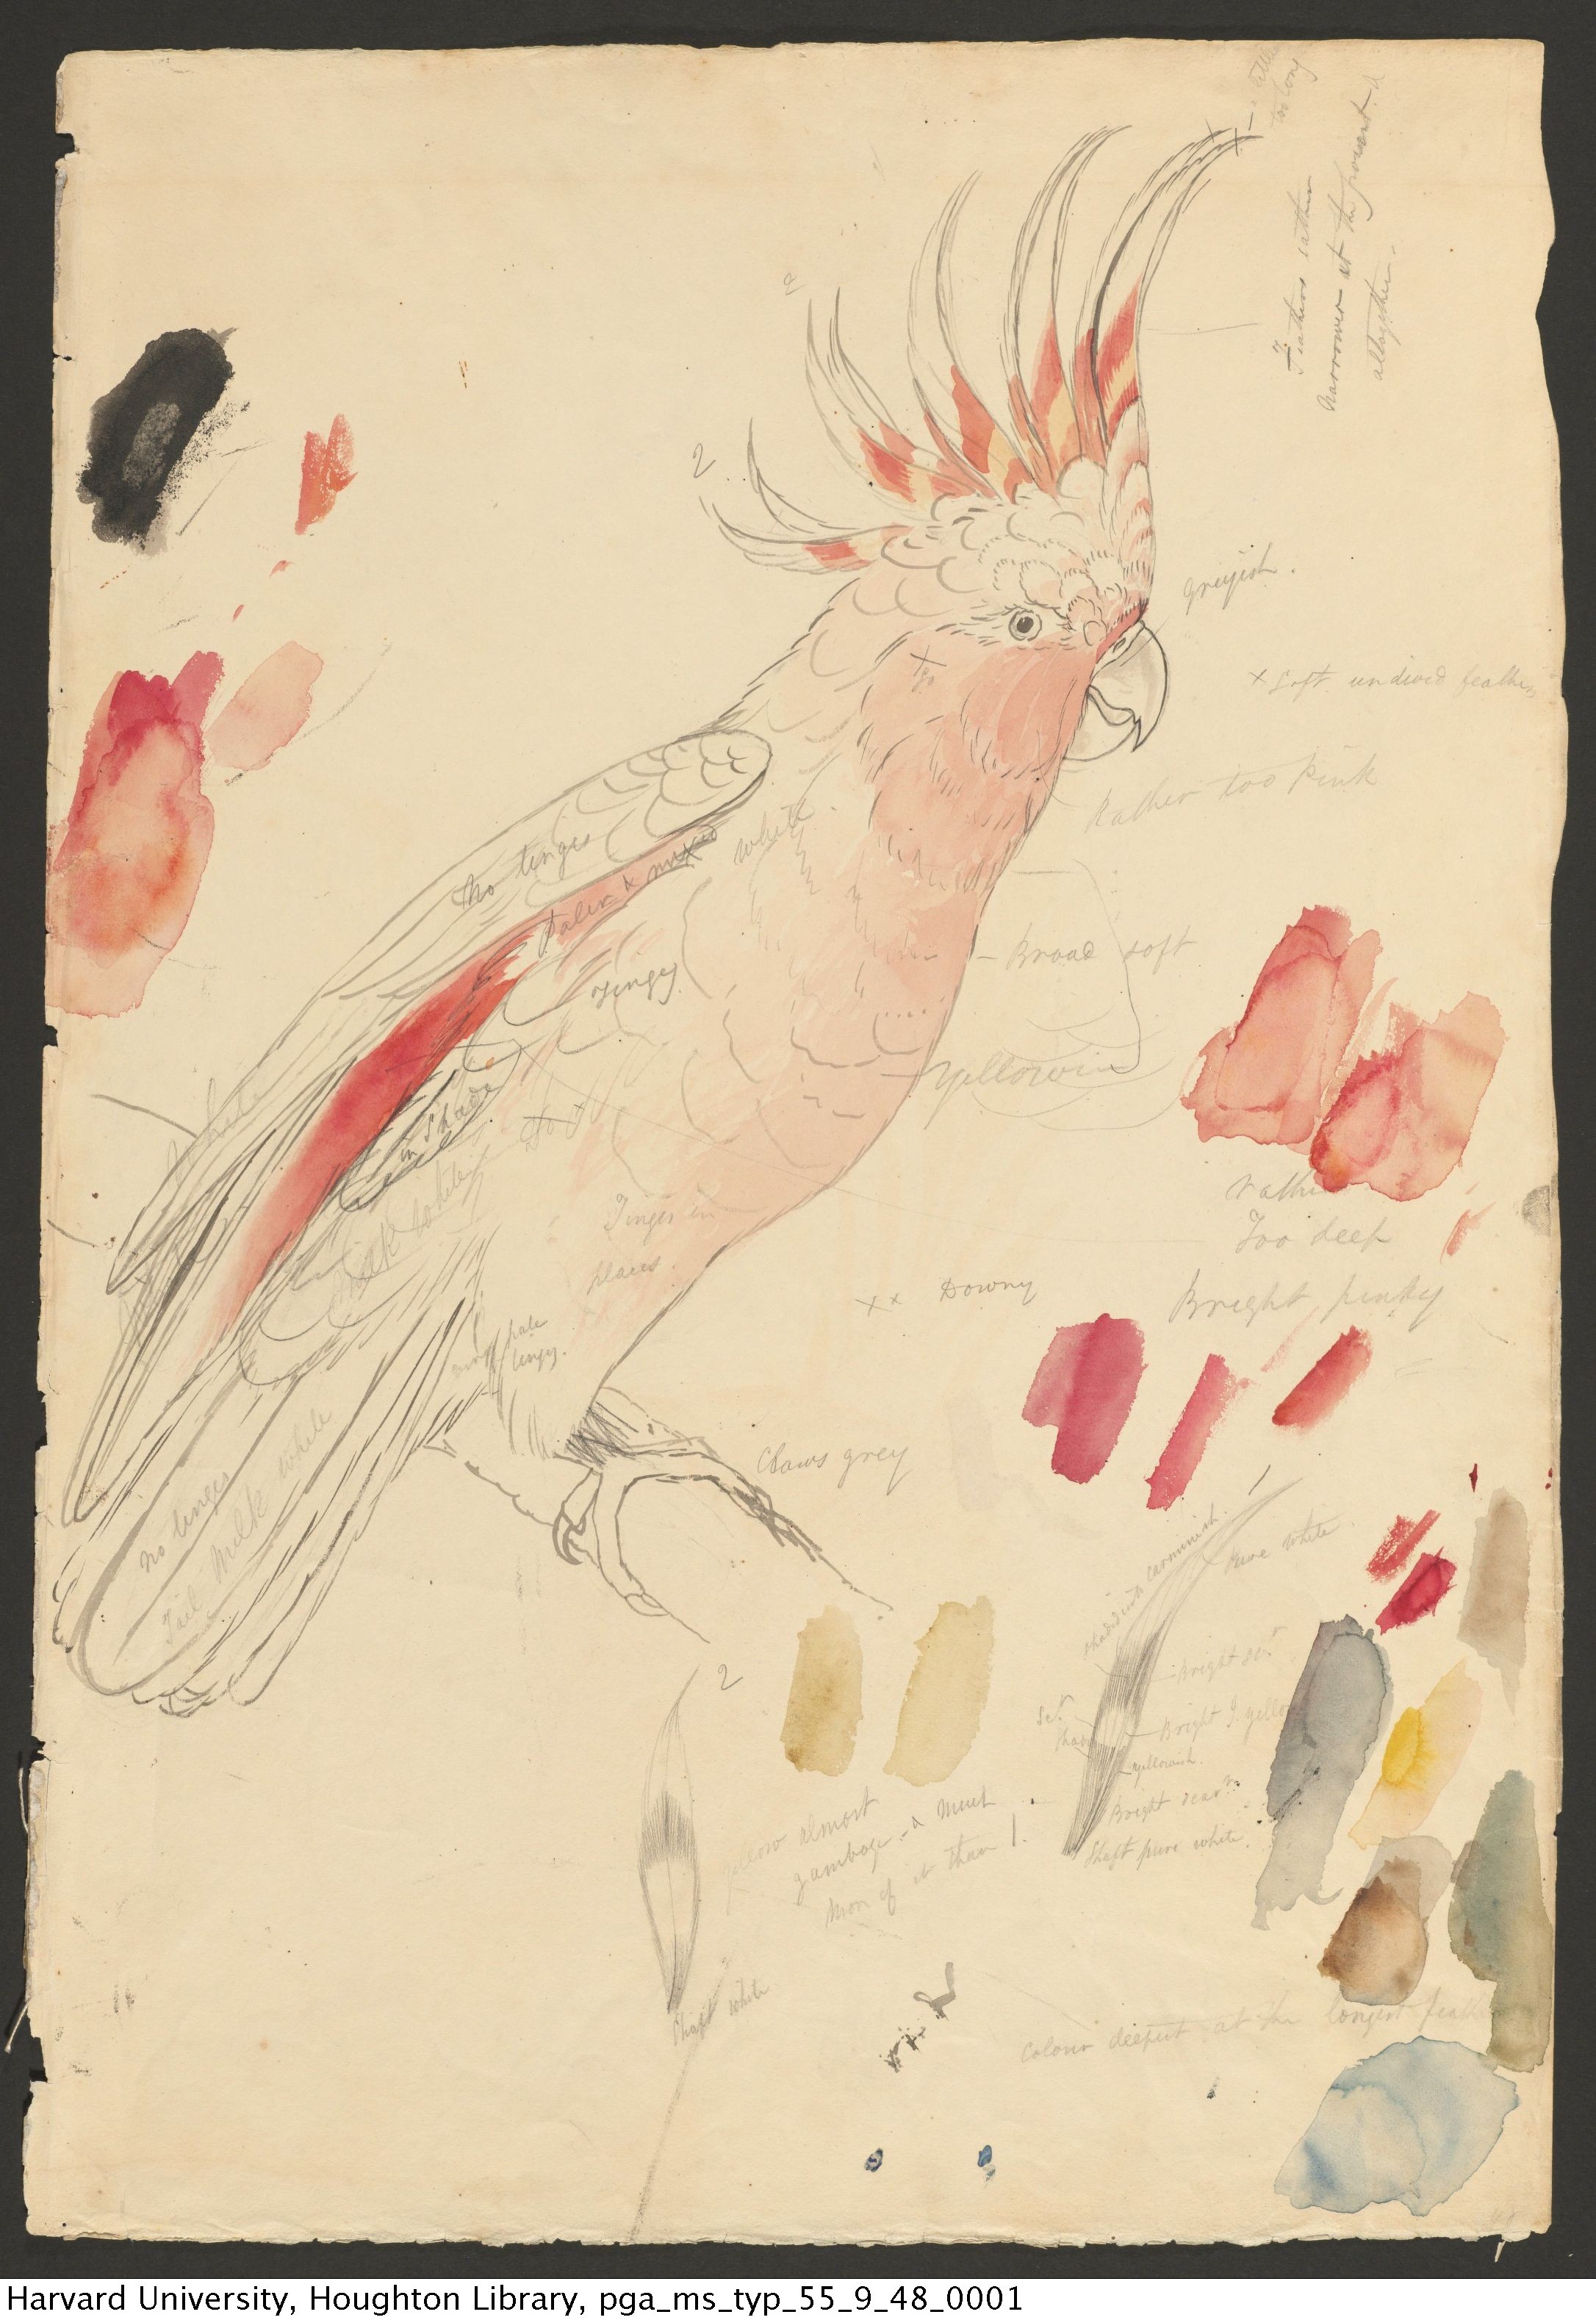 too long
Feathers rather
narrower at the point &
altogether.
2
2
greyish.
x Soft undived feathers
Rather too pink
white
No tinges
Paler & mixed
tinges
- Broad soft
Yellowing
White
in shade
Do
Milk white
Tinges in
places.
rather
Too deep
Bright pinky
x x Downy
pale
tinges.
Claws grey
no tinges
Tail Milk white
1
shaded into carminish.
Pure white
Bright scr
Bright g. yellow
yellowish.
Bright scar
Shaft pure white.
2
yellow almost
gamboge - & much
more of it than 1.
Shaft white
Colour deepest at the longest feathers
Harvard University, Houghton Library, pga_ms_typ_55_9_48_0001